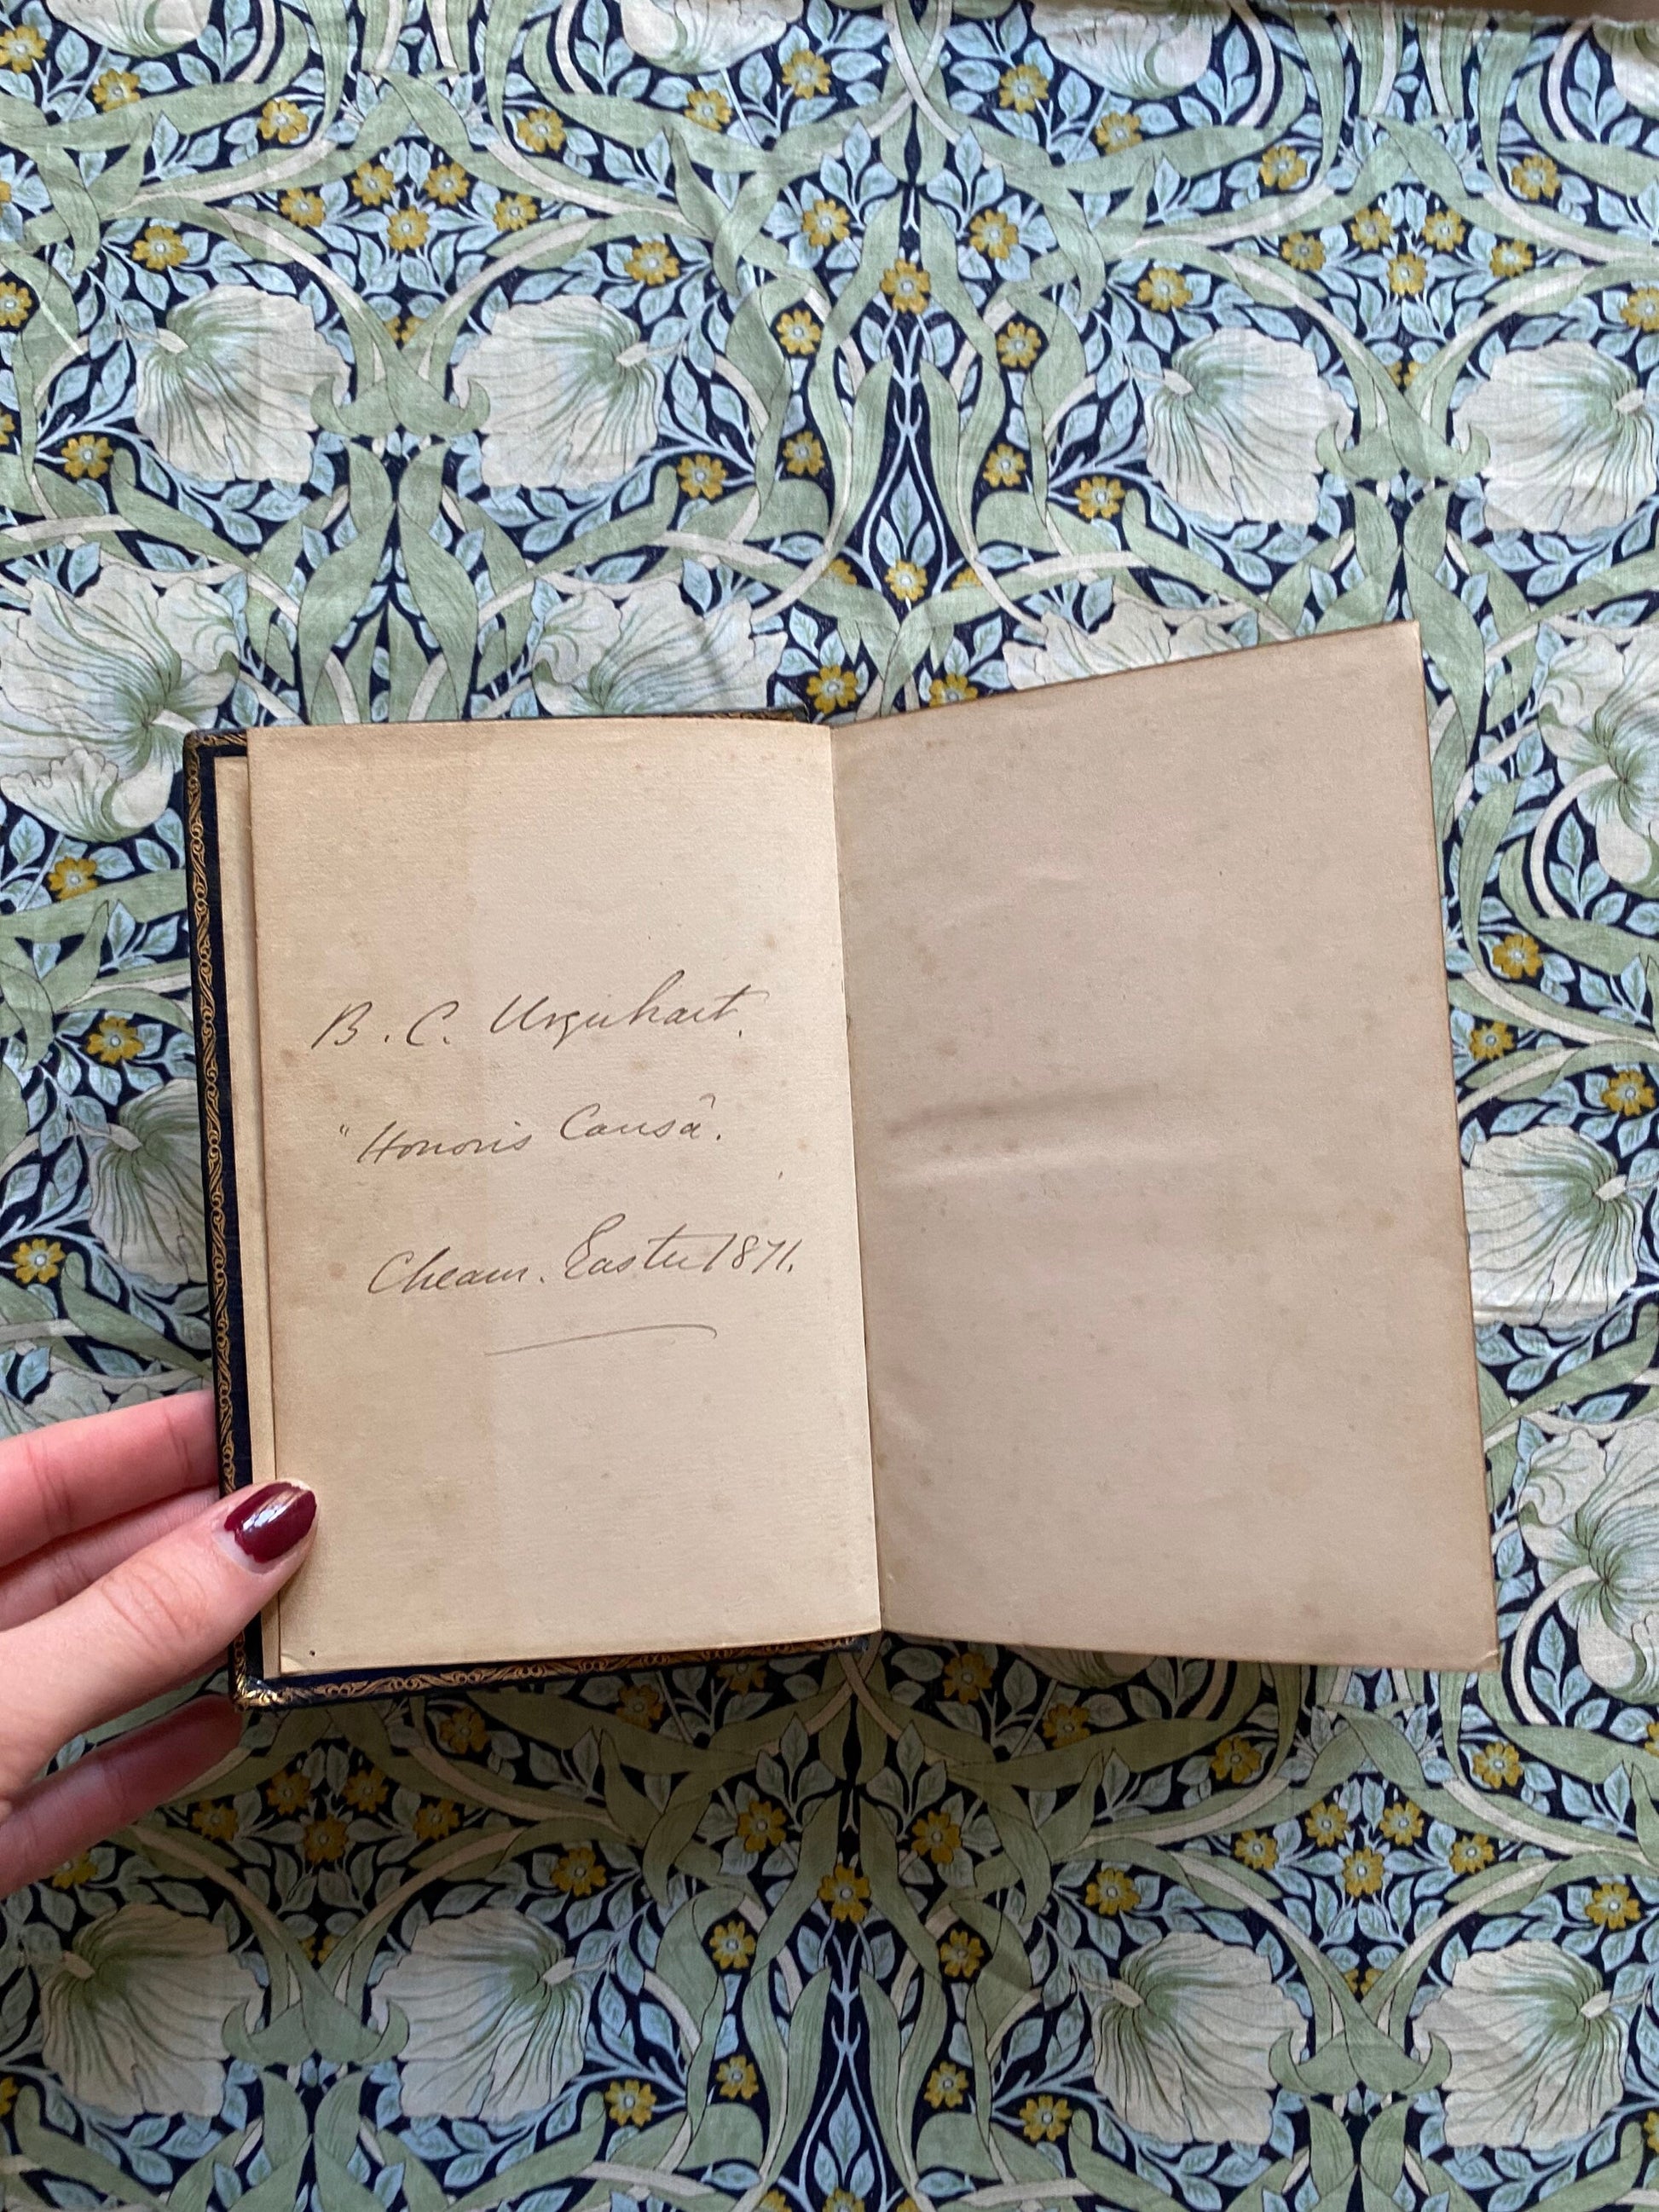 B. C. Urquhart.
"Honoris Causâ.
Cheam. Easter 1871.